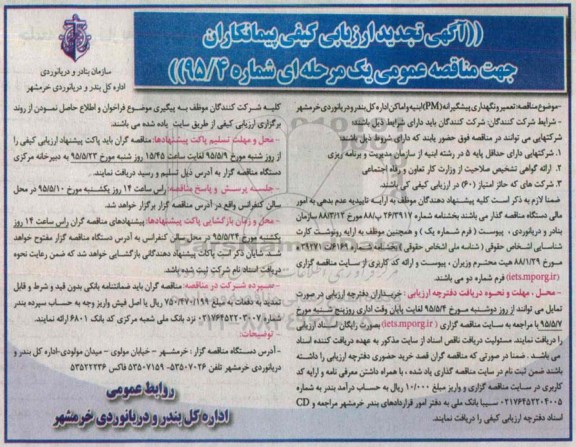 ((آگهی تجدید ارزیابی کیفی پیمانکاران
جهت مناقصه عمومی یک مرحله ای شماره ۹۵/۴))
سازمان بنادر و دریانوردی
اداره کل بندر و دریانوردی خرمشهر
-موضوع مناقصه: تعمیر و نگهداری پیشگیرانه (PM) ابنیه و اماکن اداره کل بندر و دریانوردی خرمشهر
- شرایط شرکت کنندگان: شرکت کنندگان باید دارای شرایط ذیل باشند:
شرکتهایی می توانند در مناقصه فوق حضور یابند که دارای شروط ذیل باشند:
۱. شرکتهایی دارای حداقل پایه ۵ در رشته ابنیه از سازمان مدیریت و برنامه ریزی
۲. ارائه گواهی تشخیص صلاحیت از وزارت کار تعاون و رفاه اجتماعی
۳. شرکت های که حائز امتیاز (۶۰) در ارزیابی کیفی کی باشند.
ضمنا لازم به ذکر است کلیه پیشنهاد دهندگان موظف به ارائه تاییدیه عدم بدهی به امور
مالی دستگاه مناقصه گذار می باشند بخشنامه شماره ۲۶/۳۹۱۷/ب/۸۸ مورخ ۸۸/۳/۱۲ سازمان
بنادر و دریانوردی ، پیوست ( فرم شماره یک ) و همچنین موظف به ارایه رونوشت کارت
شناسایی اشخاص حقوقی ( شناسه ملی اشخاص حقوقی
مورخ ۸۸/۱/۲۹ هیت محترم وزیران ، پیوست و ارائه کد کاربری از سایت مناقصه گزاری
(iets.mporg.ir) فرم شماره دو می باشند.
- محل ، مهلت و نحوه دریافت دفترچه ارزیابی : خریداران دفترچه ارزیابی در صورت
تمایل می توانند از روز دوشنبه مورخ ۹۵/۵/۴ لغایت پایان وقت اداری روز پنج شنبه مورخ
۹۵/۵/۷ با مراجعه به سایت مناقصه گزاری ( iets.mporg.ir) بصورت رایگان اسناد ارزیابی
را دریافت نمایند. مسئولیت دریافت ناقص اسناد از سایت مذکور به عهده دریافت کننده اسناد
می باشد . ضمنا در صورتی که مناقصه گران قصد خرید حضوری دفترچه ارزیابی را داشته
باشند ضمن ثبت نام در سایت مناقصه گذاری یاد شده ، با همراه داشتن معرفی نامه و ارایه کد
کاربری در سایت مناقصه گزاری و واریز مبلغ ۱۰/۰۰۰ ریال به حساب درآمد بندر به شماره
۲۱۷۶۴۵۲۲۰۴۰۰۵ سیبا بانک ملی به دفتر امور قراردادهای بندر خرمشهر مراجعه و CD
اسناد دفترچه ارزیابی کیفی را دریافت نمایند.
کلیه شرکت کنندگان موظف به پیگیری موضوع فراخوان و اطلاع حاصل نمودن از روند
برگزاری ارزیابی کیفی از طریق سایت یاده شده می باشند.
- محل و مهلت تسلیم پاکت پیشنهادها: مناقصه گران باید پاکت پیشنهاد ارزیابی کیفی را
از روز شنبه مورخ ۹۵/۵/۹ لغایت ساعت ۱۵/۴۵ روز شنبه مورخ ۹۵/۵/۲۳ به دبیرخانه مرکزی
دستگاه مناقصه گزار به آدرس ذیل تسلیم و رسید دریافت نمایند.
- جلسه پرسش و پاسخ مناقصه: راس ساعت ۱۴ روز یکشنبه مورخ ۹۵/۵/۱۰ در محل
سالن کنفرانس واقع در آدرس مناقصه گزار برگزار خواهد شد.
- محل و زمان بازگشایی پاکت پیشنهادها: پیشنهادهای مناقصه گران راس ساعت ۱۴ روز
یکشنبه مورخ ۹۵/۵/۲۴ در سالن کنفرانس به آدرس دستگاه مناقصه گزار مفتوح خواهد
شد. شایان ذکر است پاکات پیشنهاد دهندگانی بازگشایی خواهد شد که ضمن رعایت نحوه
دریافت اسناد نام شرکت ثبت شده باشد.
- سپرده شرکت در مناقصه: مناقصه گران باید ضمانتنامه بانکی بدون قید و شرط و قابل
تمدید یا دفعات به مبلغ ۷۵۰/۴۷۰/۱۱۹۹ ریال یا اصل فیش واریز وجه به حساب سپرده بندر
شماره ۲۱۷۶۴۵۲۲۰۳۰۰۷ نزد بانک ملی شعبه مرکزی کد بانک ۶۸۰۱ ارائه نمایند.
- توضیحات:
- آدرس دستگاه مناقصه گزار : خرمشهر - خیابان مولوی - میدان مولوی-اداره کل بندر و
دریانوردی خرمشهر تلفن ۵۳۵۰۷۰۲۶- ۵۳۵۰۷۱۵۹ فاکس ۵۳۵۲۲۲۳۶
روابط عمومی
اداره کل بندر و دریانوردی خرمشهر